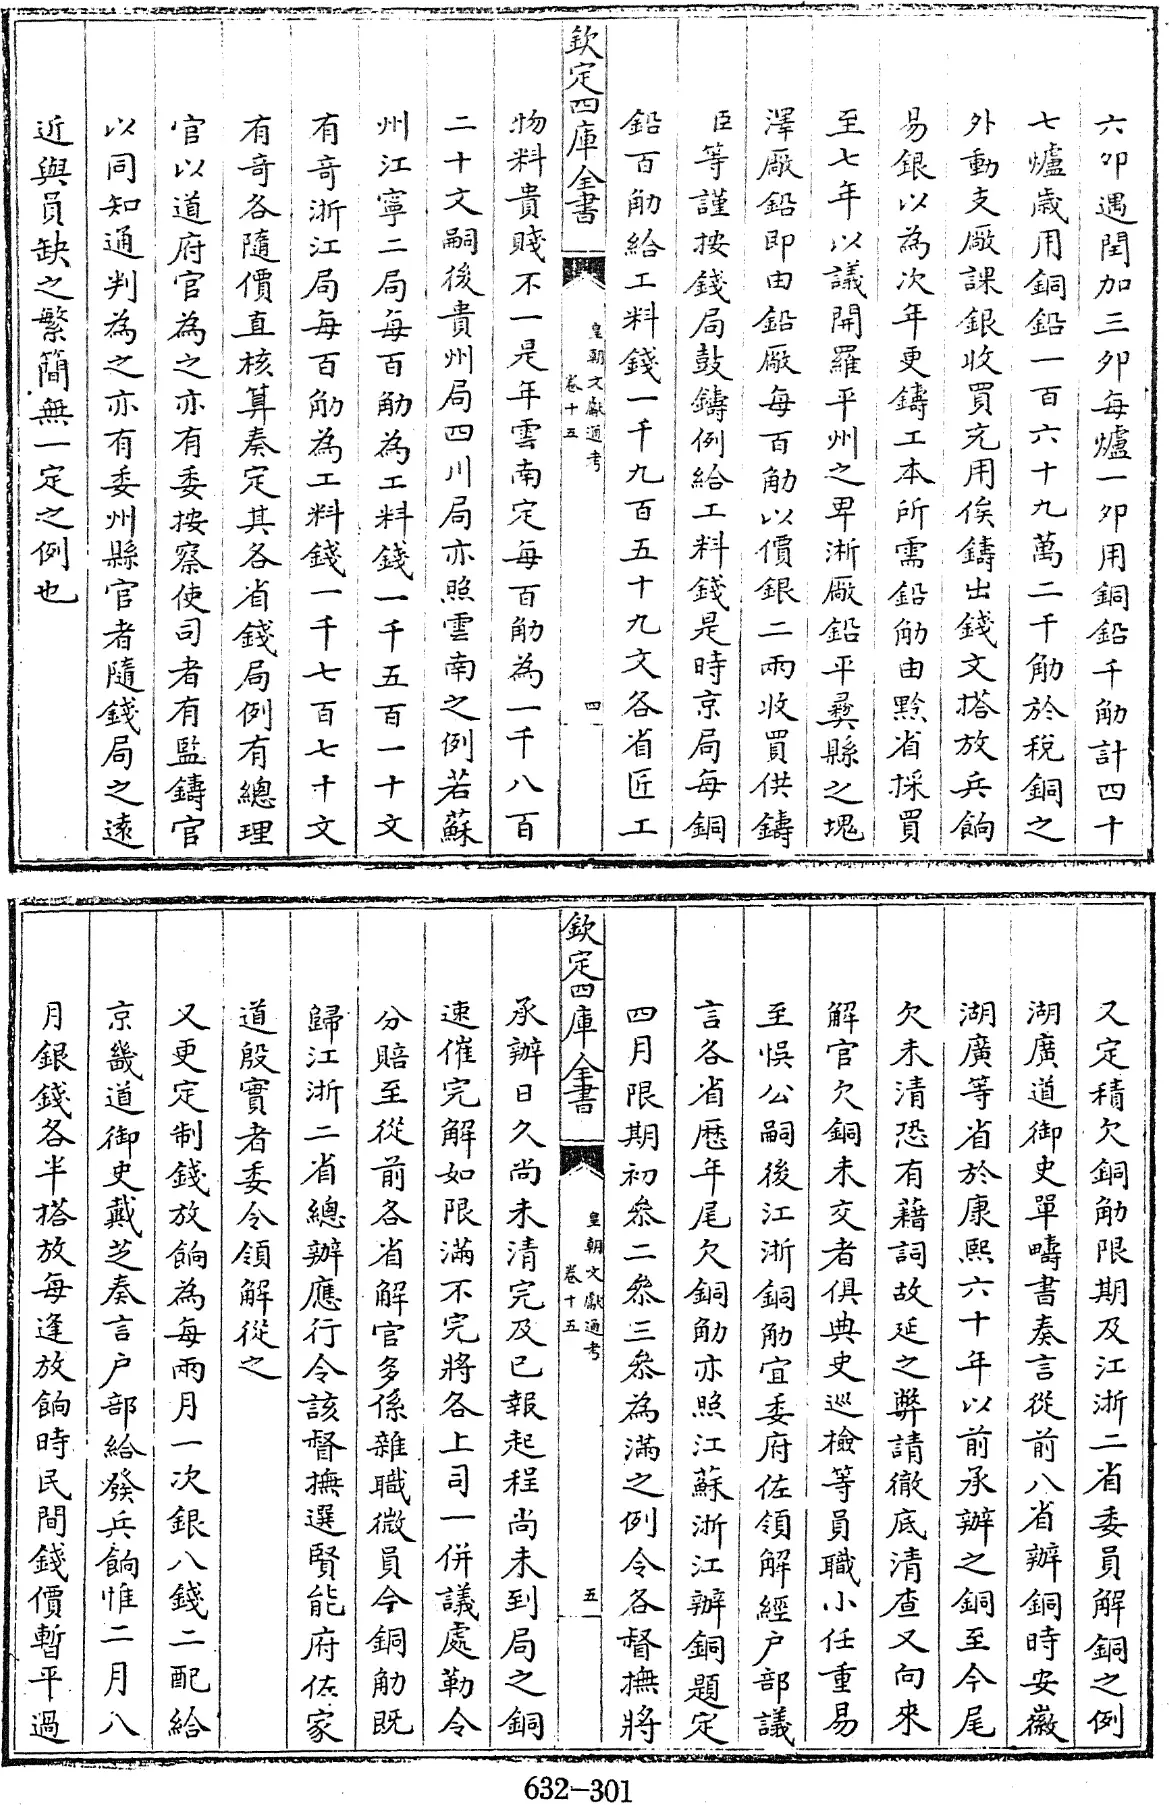 六卯遇閏加三夘每爐一夘用銅鉛千觔計四十
七爐歳用銅鉛一百六十九萬二千觔於税銅之
外動支厰課銀收買充用俟鑄出錢文搭放兵餉
易銀以為次年更鑄工本所需鉛觔由黔省採買
至七年以議開羅平州之卑淅厰鉛平彞縣之塊
澤厰鉛即由鉛厰每百觔以價銀二兩收買供鑄
臣等謹按錢局鼓鑄例給工料錢是時京局每銅
鉛百觔給工料錢一千九百五十九文各省匠工
欽定四庫全書
皇朝文獻通考
卷十五
四
物料貴賤不一是年雲南定每百觔為一千八百
二十文嗣後貴州局四川局亦照雲南之例若蘇
州江寧二局每百觔為工料錢一千五百一十文
有奇浙江局每百觔為工料錢一千七百七十文
有奇各隨價直核算奏定其各省錢局例有總理
官以道府官為之亦有委按察使司者有監鑄官
以同知通判為之亦有委州縣官者隨錢局之遠
近與員缺之繁簡無一定之例也
又定積欠銅觔限期及江浙二省委員解銅之例
湖廣道御史單疇書奏言從前八省辦銅時安徽
湖廣等省於康熙六十年以前承辦之銅至今尾
欠未清恐有藉詞故延之弊請徹底清查又向來
解官欠銅未交者俱典史巡檢等員職小任重易
至悞公嗣後江浙銅觔宜委府佐領解經户部議
言各省歴年尾欠銅觔亦照江蘇浙江辦銅題定
四月限期初叅二叅三叅為滿之例令各督撫將
欽定四庫全書
皇朝文獻通考
卷十五
五
承辦日久尚未清完及已報起程尚未到局之銅
速催完解如限滿不完將各上司一併議處勒令
分賠至從前各省解官多係雜職微員今銅觔既
歸江浙二省總辦應行令該督撫選賢能府佐家
道殷實者委令領解從之
又更定制錢放餉為每兩月一次銀八錢二配給
京畿道御史戴芝奏言户部給發兵餉惟二月八
月銀錢各半搭放每逢放餉時民間錢價暫平過
632-301